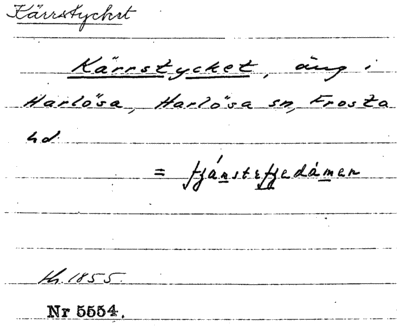 Kärrstycket
Kärrstycket, äng i
Harlösa, Harlösa sn, Frosta
hd
= fjánstefjedámen
Kh. 1855.
Nr 5554.